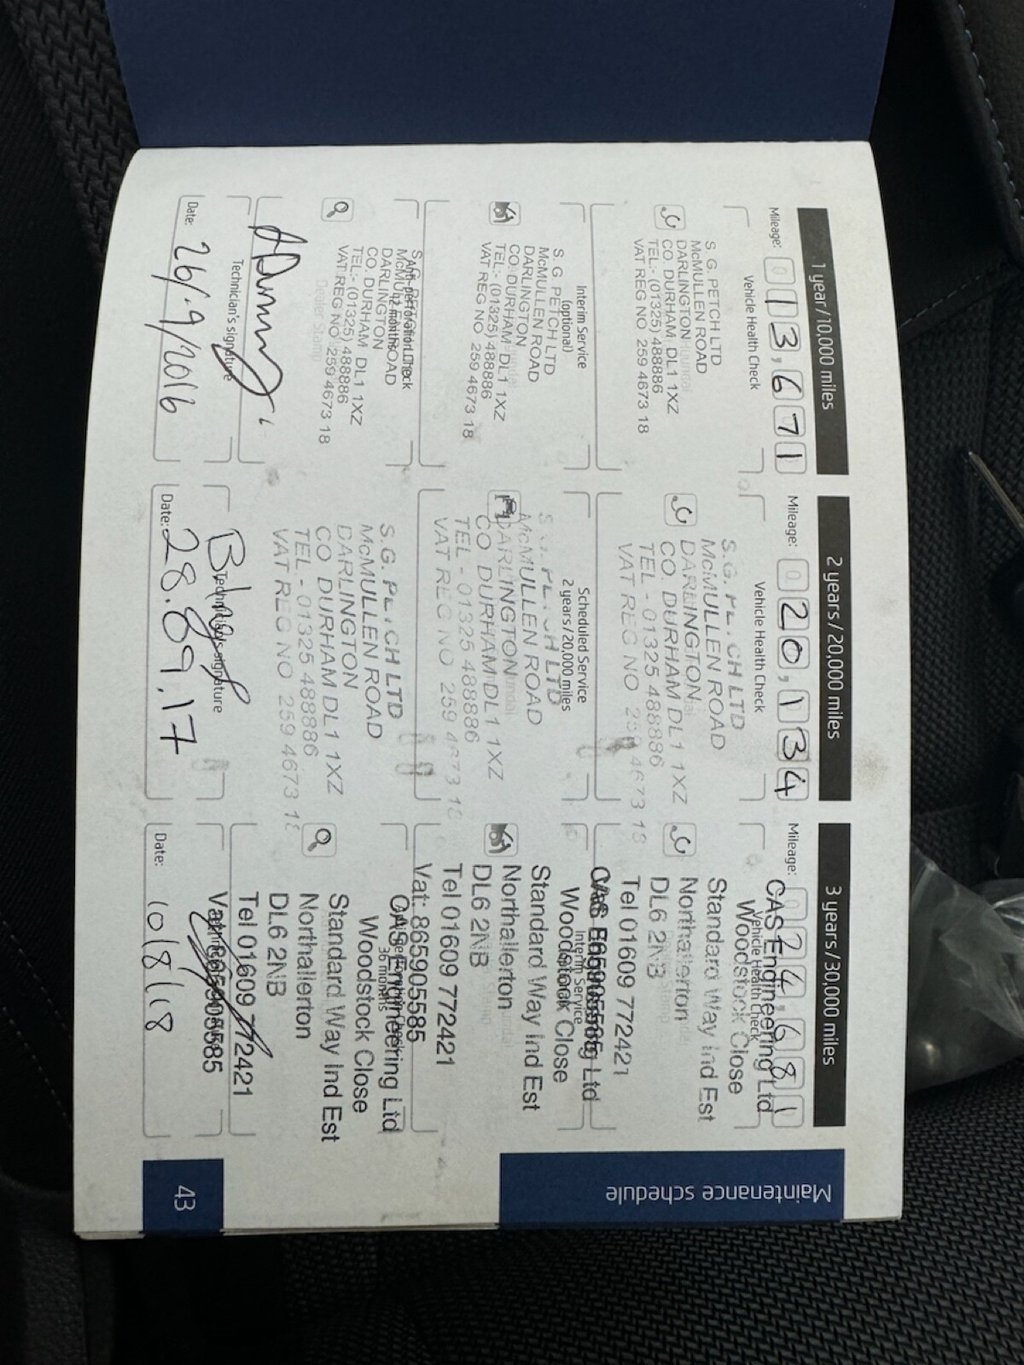 1 year/10,000 miles
Mileage: 013,671
Vehicle Health Check
S. G. PETCH LTD
McMULLEN ROAD
DARLINGTON
CO. DURHAM DL1 1XZ
TEL:- (01325) 488886
VAT REG NO 259 4673 18
Interim Service
(optional)
S. G. PETCH LTD
McMULLEN ROAD
DARLINGTON
CO. DURHAM DL1 1XZ
TEL:- (01325) 488886
VAT REG NO 259 4673 18
Anti-perforation Check
12 months
S. G. PETCH LTD
McMULLEN ROAD
DARLINGTON
CO. DURHAM DL1 1XZ
TEL:- (01325) 488886
VAT REG NO 259 4673 18
Technician's signature
Date: 26/9/2016
2 years/20,000 miles
Mileage: 020,134
Vehicle Health Check
S.G. PETCH LTD
McMULLEN ROAD
DARLINGTON
CO DURHAM DL1 1XZ
TEL - 01325 488886
VAT REG NO 259 4673 18
Scheduled Service
2 years/20,000 miles
S.G. PETCH LTD
McMULLEN ROAD
DARLINGTON
CO DURHAM DL1 1XZ
TEL - 01325 488886
VAT REG NO 259 4673 18
S.G. PETCH LTD
McMULLEN ROAD
DARLINGTON
CO DURHAM DL1 1XZ
TEL - 01325 488886
VAT REG NO 259 4673 18
Technician's signature
Date: 28.09.17
3 years/30,000 miles
Mileage: 024,681
Vehicle Health Check
CAS Engineering Ltd
Woodstock Close
Standard Way Ind Est
Northallerton
DL6 2NB
Tel 01609 772421
Vat: 865905585
Interim Service
CAS Engineering Ltd
Woodstock Close
Standard Way Ind Est
Northallerton
DL6 2NB
Tel 01609 772421
Vat: 865905585
36 months
CAS Engineering Ltd
Woodstock Close
Standard Way Ind Est
Northallerton
DL6 2NB
Tel 01609 772421
Vat: 865905585
Date: 10/8/18
Maintenance schedule
43